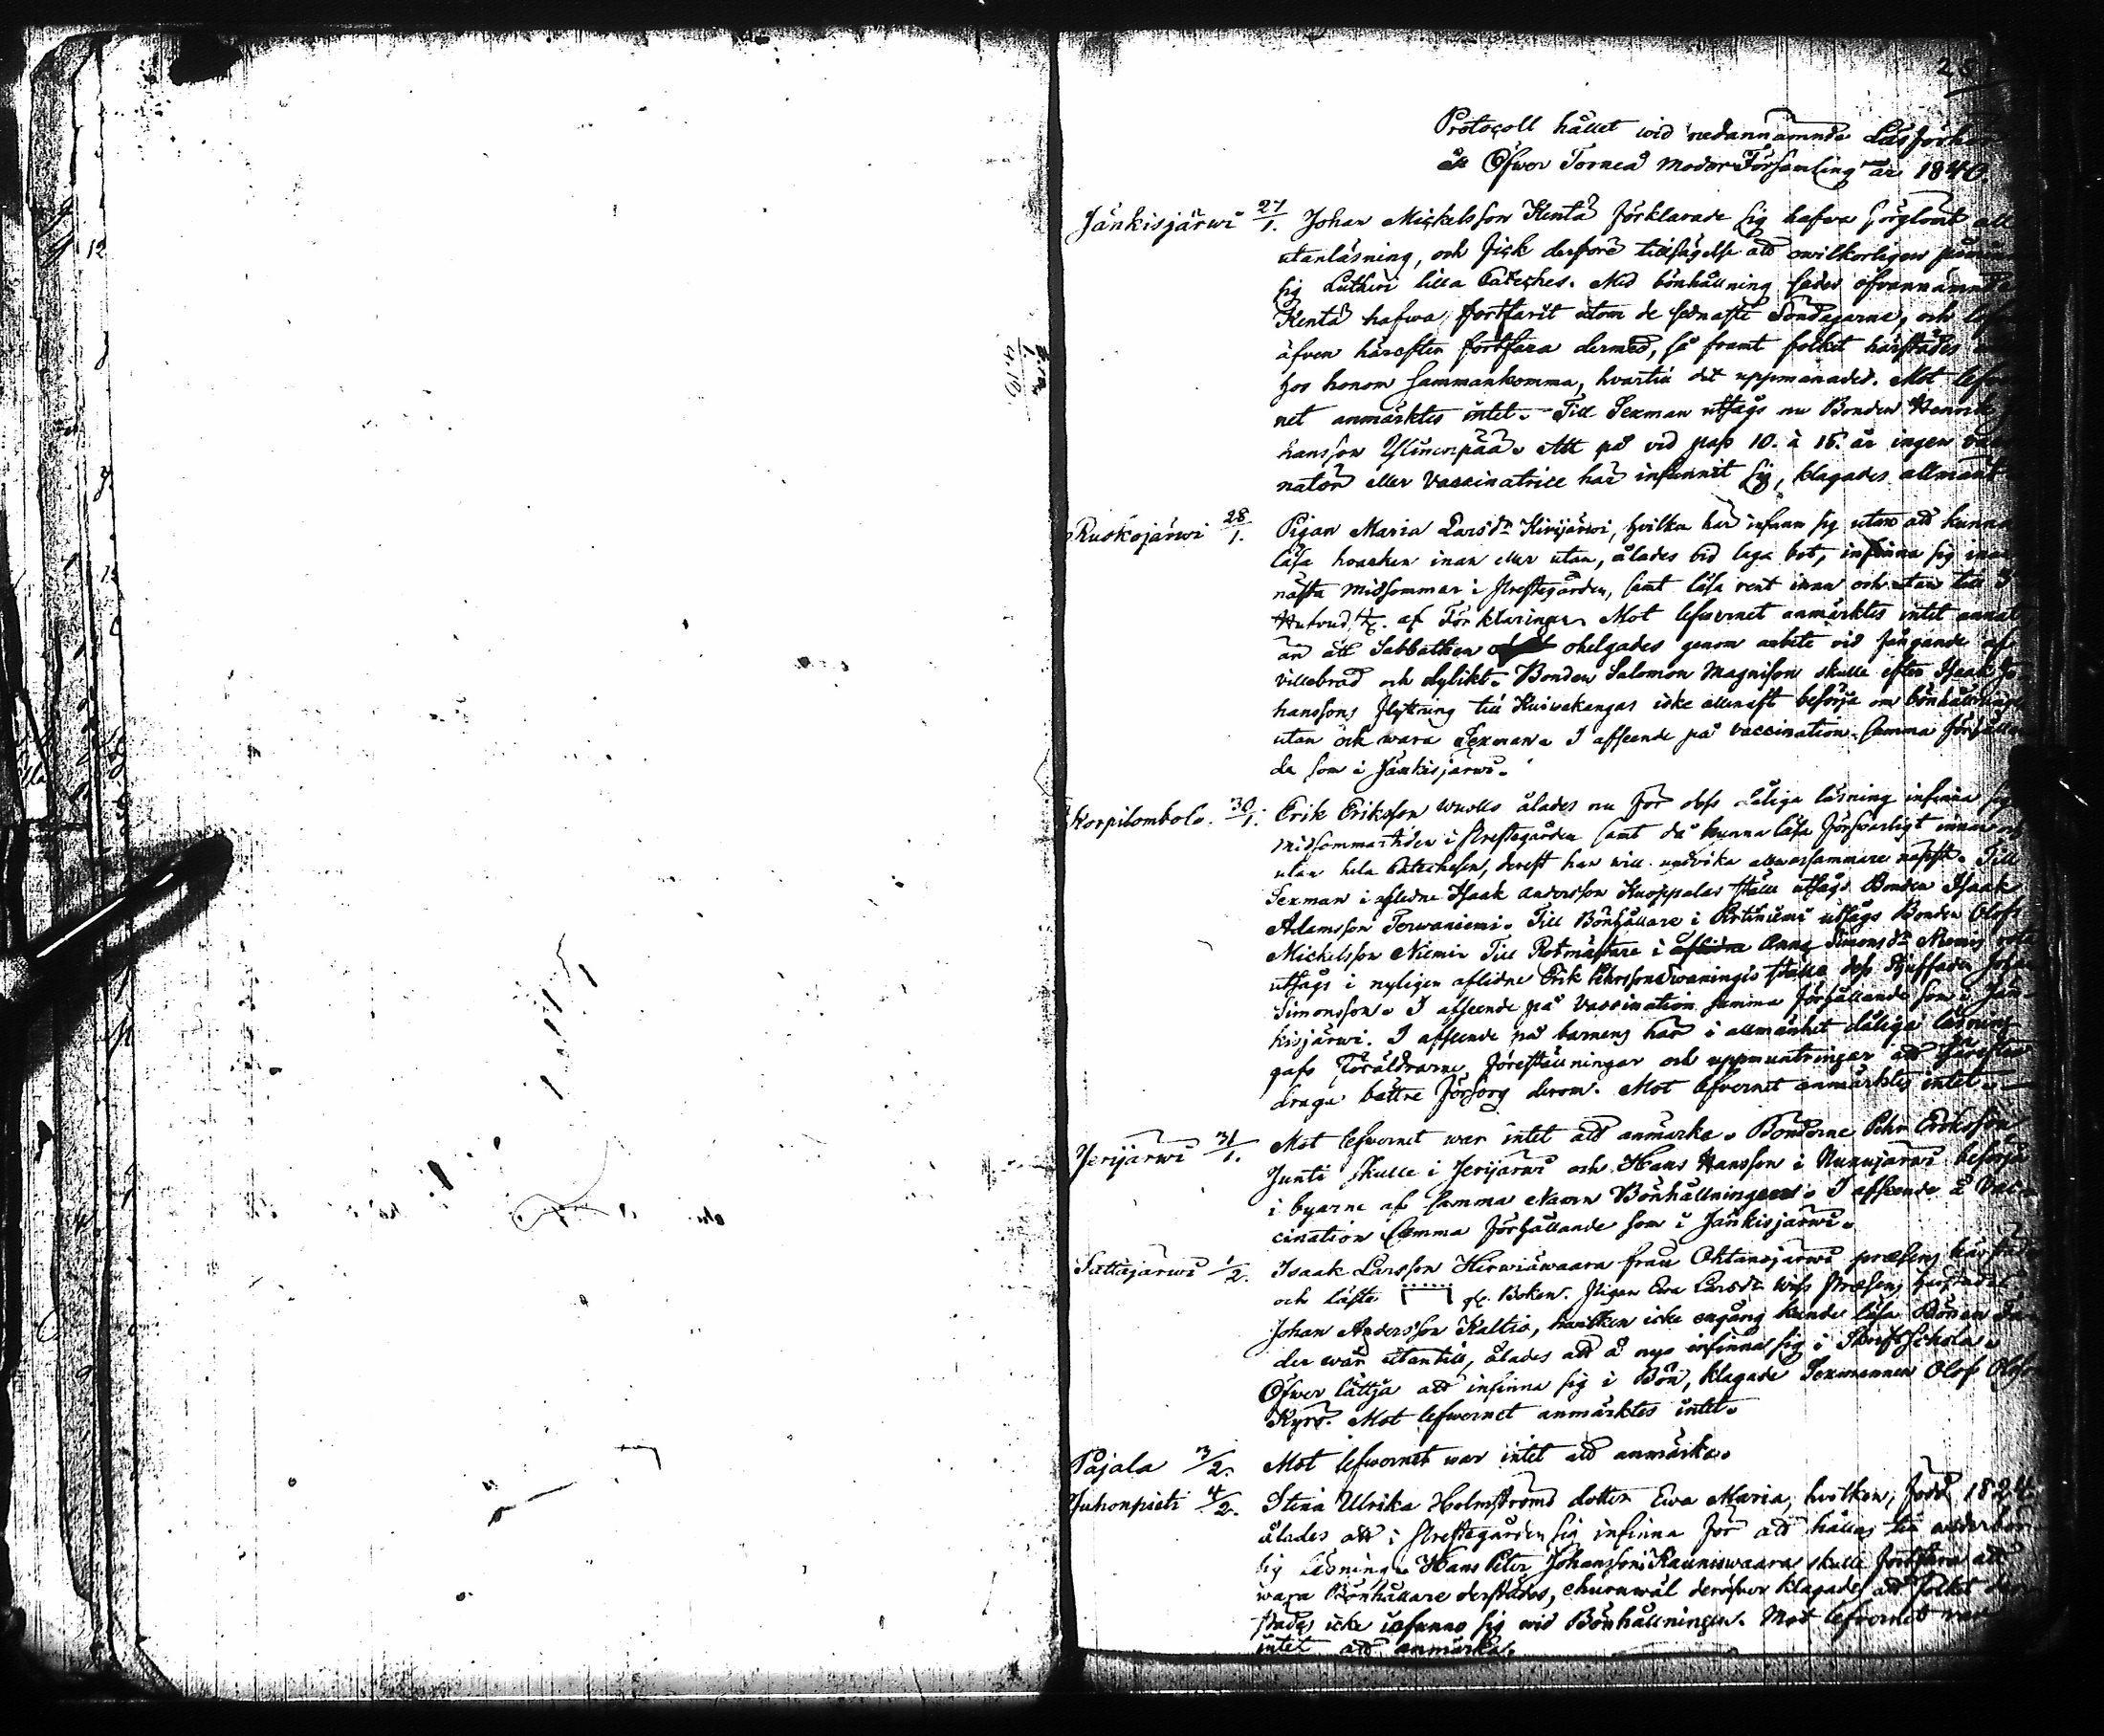 Protocoll hållet wid nedannämnde Läsförhör
i Öfwer Torneå Moder Församling år 1840.
Jänkisjärwi 27/1. Johan Mickelsson Kenta förklarade sig hafva förglömt all
utanläsning, och fick derföre tillsägelse att owilkorligen
sig Lutheri lilla Cateches. Med bönhållning sades ofvannämnda
Kenta hafwa fortfarit utom de sednaste Söndagarne, och
äfven härefter fortfara dermed, så framt folket härstädes
hos honom sammankomma, hvartill det uppmanades. Mot lefver
net anmärktes intet. Till Sexman utsågs nu Bonden Henrik
hansson Ylinenpää. Att på vid pass 10. à 15. år ingen vacci
nator eller Vaccinatrice har infunnit sig, klagades allmänt.
Ruskojärwi 28/1. Pigan Maria Larsdr Kirijärwi, hvilken här infann sig utan att kunna
läsa hvarken innan eller utan, ålades vid laga bot, infinna sig innan
nästa Midsommar i Prestegården, samt läsa rent innan och utan till 3
Hufvud St. af Förklaringen. Mot lefwernet anmärktes intet annat
än att Sabbathen ohelgades genom arbete vid fångande af
villebråd och dylikt. Bonden Salomon Magnisson skulle efter Isaak Jo
hanssons flyttning till Kuiwakangas icke allenast besörja om bönhållningen
utan ock wara Sexman. I afseende på vaccination samma förhållan
de som i Jänkisjärwi.
Korpilombolo. 30/1. Erik Eriksson Wuollo ålades nu för dess dåliga läsning infinna sig
Midsommartiden i Prestegården samt då kunna läsa försvarligt innan och
utan hela Catechesen, derest han will undvika allwarsammare näpst. Till
Sexman i aflidne Isaak Andersson Kuoppalas ställe utsågs Bonden Isaak
Adamsson Terwaniemi. Till Bönhållare i Pirtiniemi utsågs Bonden Olof
Michelsson Niemi. Till Rotmästare i Anna Simonsdr Niemis rote
utsågs i nyligen aflidne Erik Pehrsson Swaningis ställe dess Styffader Johan
Simonsson. I afseende på Vaccination samma förhållande som i Jän
kisjärwi. I afseende på barnens här i allmänhet dåliga läsning
gafs Föräldrarne föreställningar och uppmuntringar att härefter
draga bättre försorg derom. Mot lefvernet anmärktes intet.
Jerijärwi 31/1. Mot lefvernet war intet att anmärka. Bönderne Pehr Eriksson
Junti skulle i Jerijärwi och Hans Hansson i Nuuujärwi besörja
i byarne af samma Namn Bönhållningen. I afseende å Vac
cination samma förhållande som i Jänkisjärwi.
Sattajärwi 1/2. Isaak Larsson Hirwiäwaara från Ohtanajärwi præsens härstädes
och läste i Boken. Pigan Ewa Larsdr præsens härstädes
Johan Andersson Kaltio, hwilken icke engång kunde läsa Bönen Fa
der wår utantill, ålades att å nyo infinna sig i Skriftschola.
Öfwer lättja att infinna sig i Bön, klagade Sexmannen Olof Olofs
Kyrö. Mot lefwernet anmärktes intet.
Pajala 3/2. Mot lefwernet war intet att anmärka.
Juhonpieti 4/2. Stina Ulrika Holmströms dotter Ewa Maria, hvilken, född 1824.
ålades att i Prestegården sig infinna för att hållas till
lig läsning. Hans Peter Johansson Kauniswaara skulle fortfara att
wara Bönhållare derstädes, ehuruwäl deröfver klagades att folket der
städes icke infunno sig wid Bönhållningen. Mot lefvernet war
intet att anmärka.